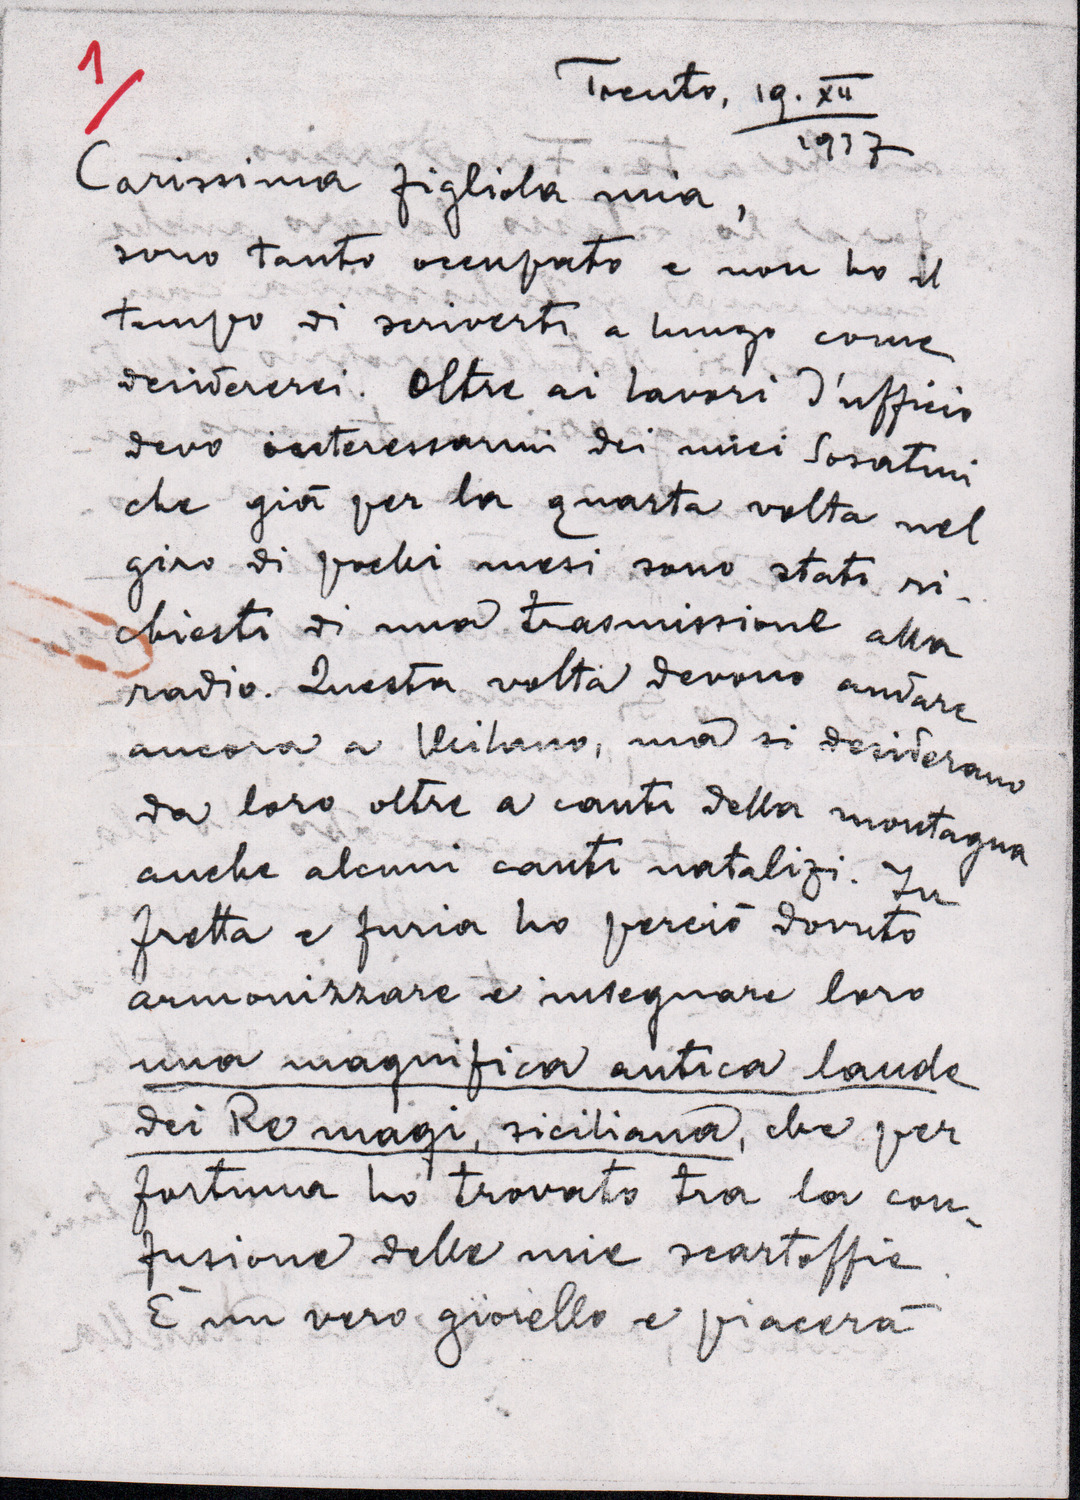 1/
Trento, 19. XII
1937
Carissima figliola mia,
sono tanto occupato e non ho il
tempo di scriverti a lungo come
desidererei. Oltre ai lavori d'ufficio
devo interessarmi dei miei Sosatini
che già per la quarta volta nel
giro di pochi mesi sono stati ri-
chiesti di una trasmissione alla
radio. Questa volta devono andare
ancora a Milano, ma si desiderano
da loro oltre a canti della montagna
anche alcuni canti natalizi. In
fretta e furia ho perciò dovuto
armonizzare e insegnare loro
una magnifica antica laude
dei Re magi, siciliana, che per
fortuna ho trovato tra la con-
fusione delle mie scartoffie.
È un vero gioiello e piacerà